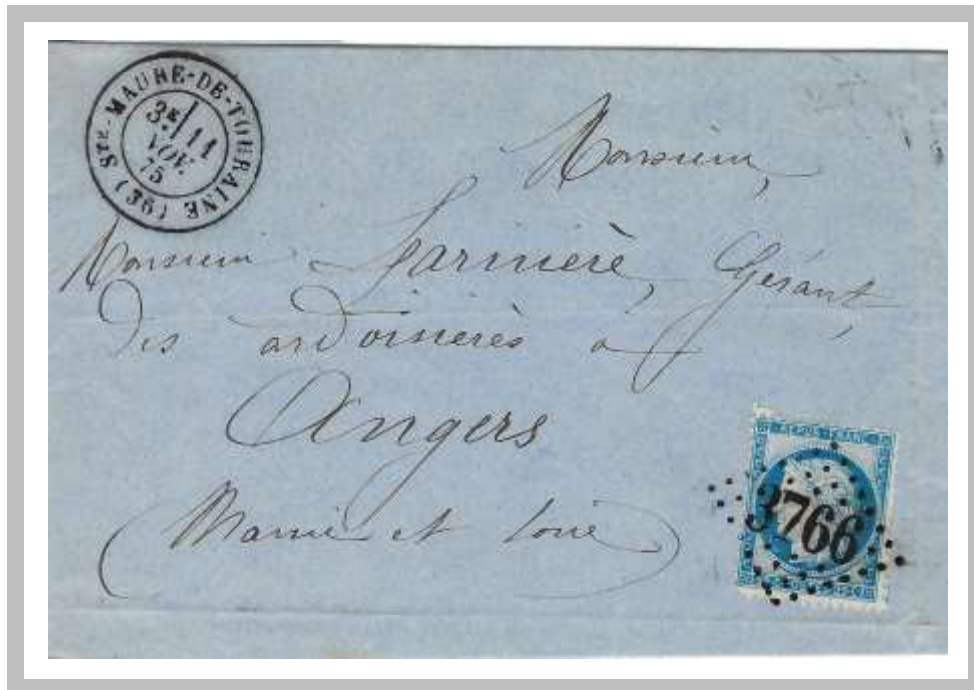 STE-MAURE-DE-TOURAINE (36)
3E 11
NOV.
75
Monsieur,
Monsieur Larivière, Gérant
des ardoisières à
Angers
(Maine et Loire)
REPUB · FRANC
3766